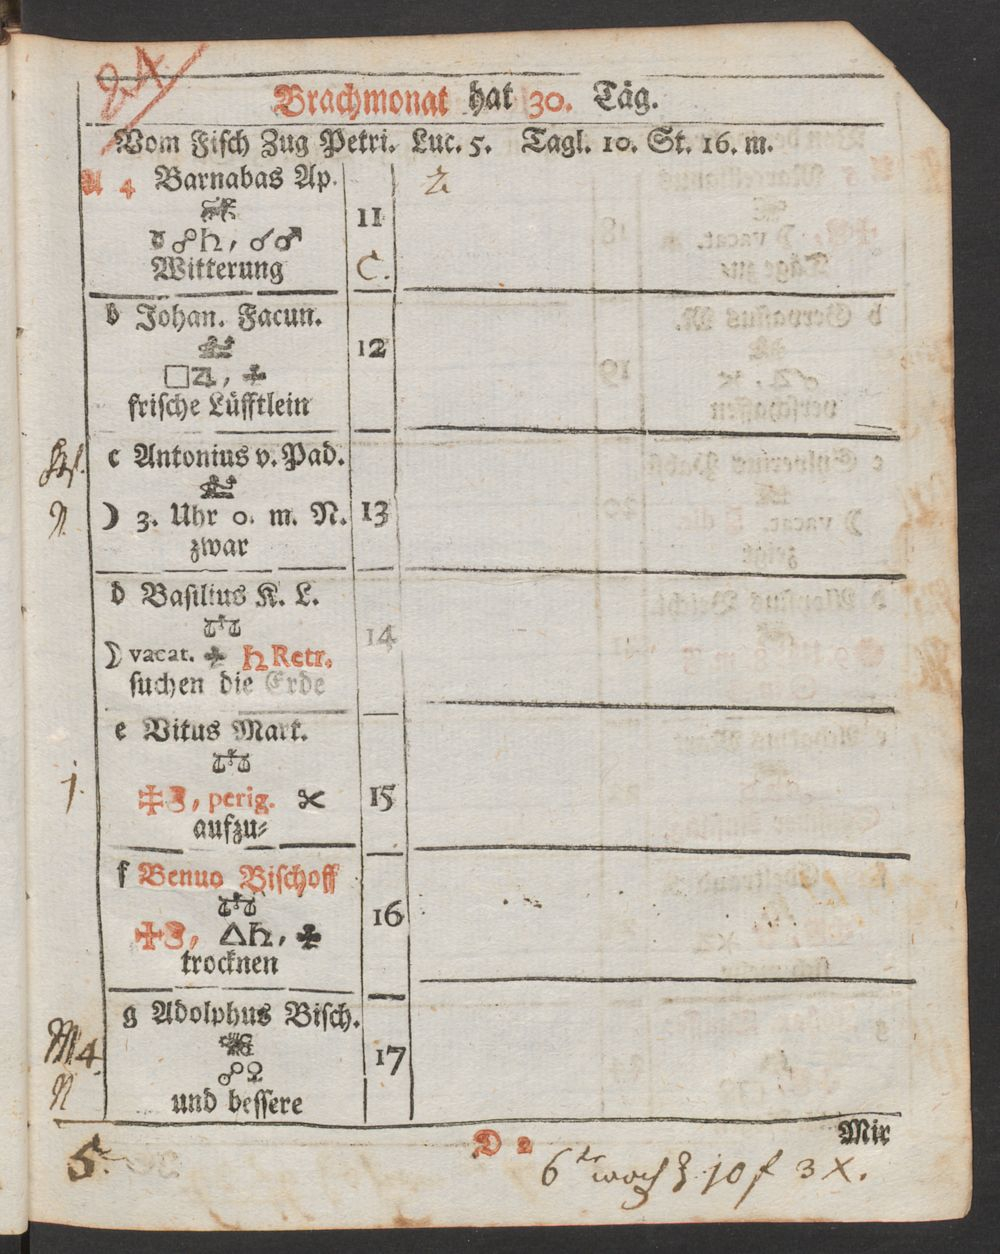 24
Brachmonat hat 30. Täg.
Vom Fisch Zug Petri. Luc. 5. Tagl. 10. St. 16. m.
A 4 Barnabas Ap.
☋ ☍♄, ☌♂
Witterung
11
C.
2
b Johan. Facun.
□♃, ✢
frische Lüfftlein
12
c Antonius v. Pad.
☽ 3. Uhr 0. m. N.
zwar
13
N.
d Basilius K. L.
♎
☽ vacat. ✢ ♄ Retr.
suchen die Erde
14
e Vitus Mart.
♎
perig. ✂
aufzu⸗
15
j.
f Benno Bischoff
♎
△♄, ✢
trocknen
16
g Adolphus Bisch.
☍♀
und bessere
17
M 4.
N
D 2
Mir
5.
6te woch 10 f 3 X.